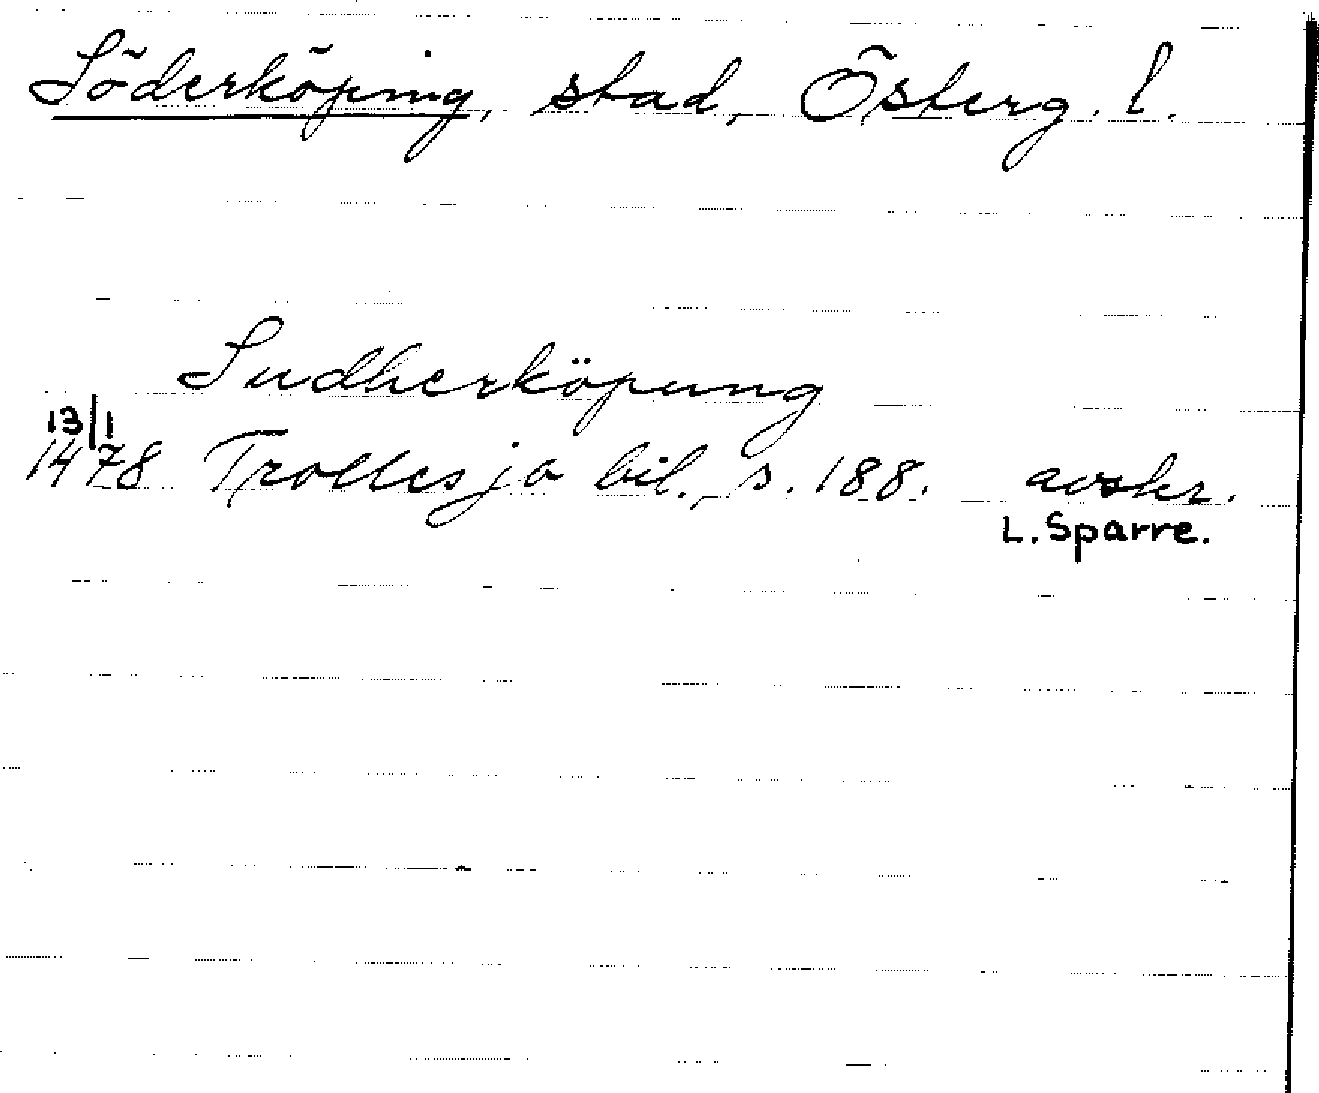 Söderköping, stad, Österg. l.
Sudherköpung
13/1
1478 Trolles jo bil., s. 188. avskr.
L. Sparre.